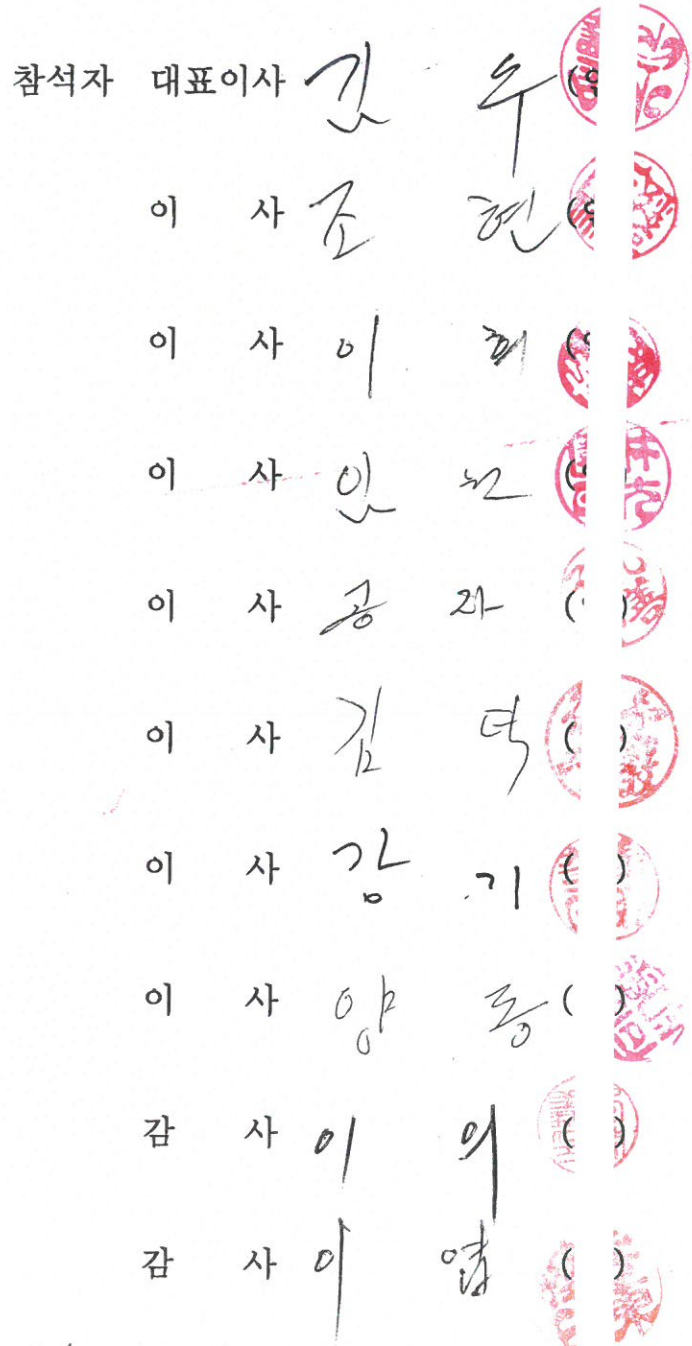 참석자 대표이사 김 우 (인
이 사 조 현 (인
이 사 이 희 (
이 사 인 (
이 사 공 자 ( )
이 사 김 덕 ( )
이 사 강 기 ( )
이 사 양 동 ( )
감 사 이 의 ( )
감 사 이 ( )